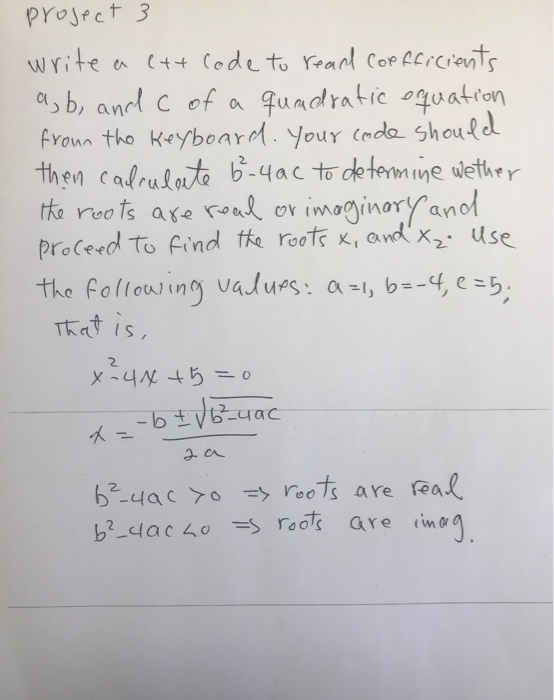 project 3
write a C++ code to read coefficients
a, b, and c of a quadratic equation
from the keyboard. Your code should
then calculate b²-4ac to determine wether
the roots are real or imaginary and
proceed to find the roots x₁ and x₂. Use
the following values: a=1, b=-4, c=5;
That is,
x²-4x+5=0
x = -b±√b²-4ac
2a
b²-4ac >0 => roots are real
b²-4ac <0 => roots are imag.